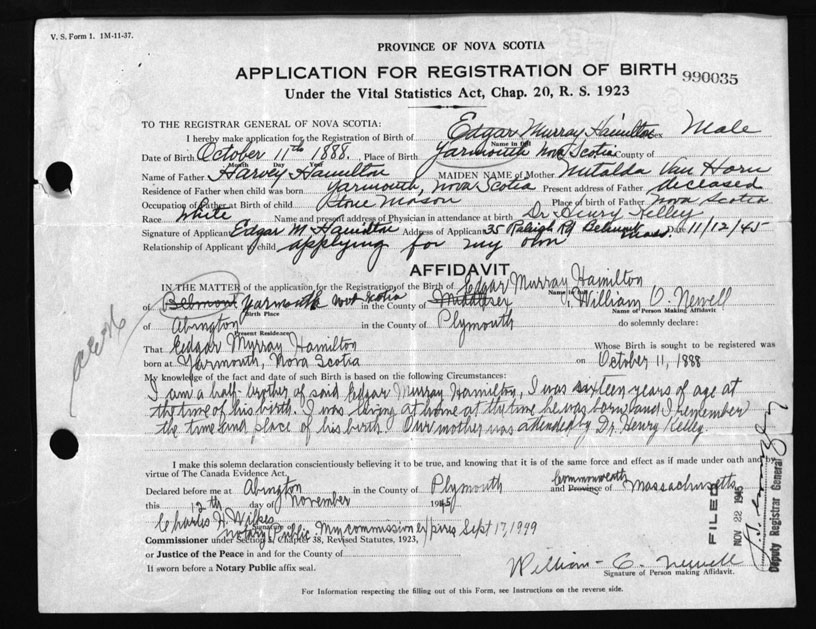 V. S. Form 1. 1M-11-37.
PROVINCE OF NOVA SCOTIA
APPLICATION FOR REGISTRATION OF BIRTH 990035
Under the Vital Statistics Act, Chap. 20, R. S. 1923
TO THE REGISTRAR GENERAL OF NOVA SCOTIA:
I hereby make application for the Registration of Birth of Edgar Murray Hamilton Sex Male
Name in full
Date of Birth October 11th 1888. Place of Birth Yarmouth Nova Scotia County of
Month Day Year
Name of Father Harvey Hamilton MAIDEN NAME of Mother Mutalda Van Horn
Residence of Father when child was born Yarmouth, Nova Scotia Present address of Father deceased
Occupation of Father at Birth of child Stone Mason Place of birth of Father Nova Scotia
Race White Name and present address of Physician in attendance at birth Dr Henry Kelley
Signature of Applicant Edgar M. Hamilton Address of Applicant 35 Raleigh Rd Belmont Mass. Date 11/12/45
Relationship of Applicant to child applying for my own
AFFIDAVIT
IN THE MATTER of the application for the Registration of the Birth of Edgar Murray Hamilton
Name in full
of Belmont Yarmouth Nova Scotia in the County of Middlesex I, William O. Newell
Birth Place Name of Person Making Affidavit
of Abington in the County of Plymouth do solemnly declare:
Present Residence
That Edgar Murray Hamilton Whose Birth is sought to be registered was
born at Yarmouth, Nova Scotia on October 11, 1888
My knowledge of the fact and date of such Birth is based on the following Circumstances:
I am a half-brother of said Edgar Murray Hamilton, I was sixteen years of age at
the time of his birth. I was living at home at the time he was born and I remember
the time and place of his birth. Our mother was attended by Dr. Henry Kelley.
I make this solemn declaration conscientiously believing it to be true, and knowing that it is of the same force and effect as if made under oath and by
virtue of The Canada Evidence Act.
Commonwealth
Declared before me at Abington in the County of Plymouth and Province of Massachusetts
this 12th day of November 1945
Charles H. Wilkes
Signature of
Notary Public My commission expires Sept 17, 1949
Commissioner under Section 2, Chapter 38, Revised Statutes, 1923,
or Justice of the Peace in and for the County of
If sworn before a Notary Public affix seal.
William C. Newell
Signature of Person making Affidavit.
For Information respecting the filling out of this Form, see Instructions on the reverse side.
FILED
NOV 22 1945
Deputy Registrar General